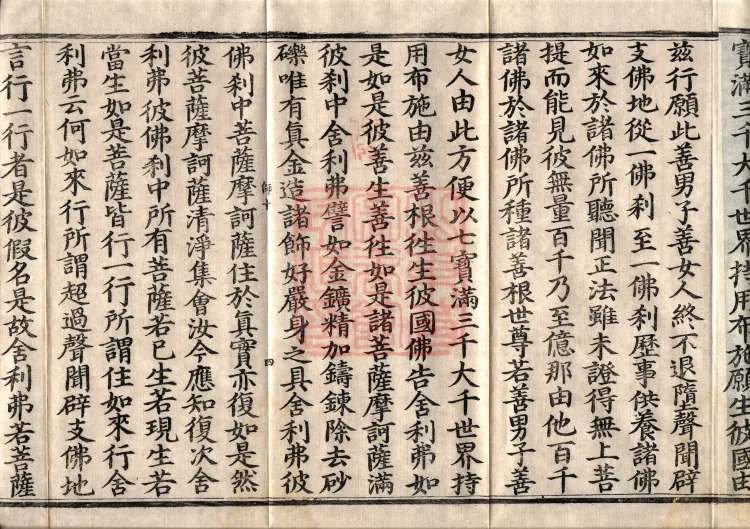 寶滿三千大千世界持用布施願生彼國由
兹行願此善男子善女人終不退隨聲聞辟
支佛地從一佛刹至一佛刹歷事供養諸佛
如來於諸佛所聽聞正法雖未證得無上菩
提而能見彼無量百千乃至億那由他百千
諸佛於諸佛所種諸善根世尊若善男子善
女人由此方便以七寶滿三千大千世界持
用布施由兹善根徃生彼國佛告舍利弗如
是如是彼善生善徃如是諸菩薩摩訶薩滿
彼刹中舍利弗譬如金鑛精加鑄鍊除去砂
礫唯有真金造諸飾好嚴身之具舍利弗彼
師十
四
佛刹中菩薩摩訶薩住於真實亦復如是然
彼菩薩摩訶薩清淨集會汝今應知復次舍
利弗彼佛刹中所有菩薩若已生若現生若
當生如是菩薩皆行一行所謂住如來行舍
利弗云何如來行所謂超過聲聞辟支佛地
言行一行者是彼假名是故舍利弗若菩薩